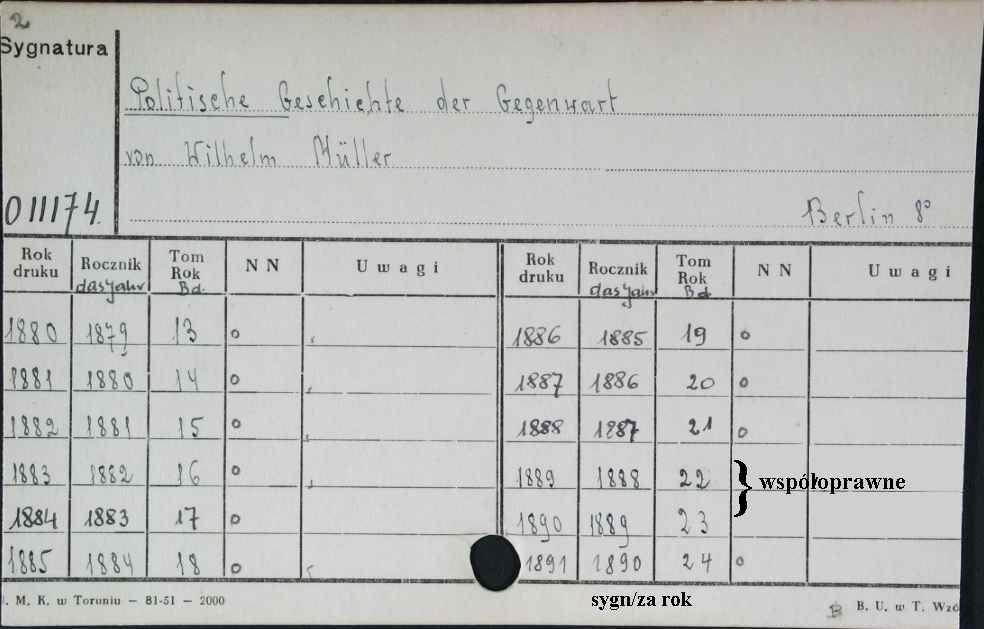 2
Sygnatura
Politische Geschichte der Gegenwart
von Wilhelm Müller
011174.
Berlin 8°
Rok druku Rocznik Tom Rok N N Uwagi Rok druku Rocznik Tom Rok N N Uwagi
das Jahr Bd. das Jahr Bd.
1880 1879 13 o 1886 1885 19 o
1881 1880 14 o 1887 1886 20 o
1882 1881 15 o 1888 1887 21 o
1883 1882 16 o 1889 1888 22 } współoprawne
1884 1883 17 o 1890 1889 23
1885 1884 18 o 1891 1890 24 o
. M. K. w Toruniu — 81-51 — 2000 sygn/za rok B. U. w T. Wzó